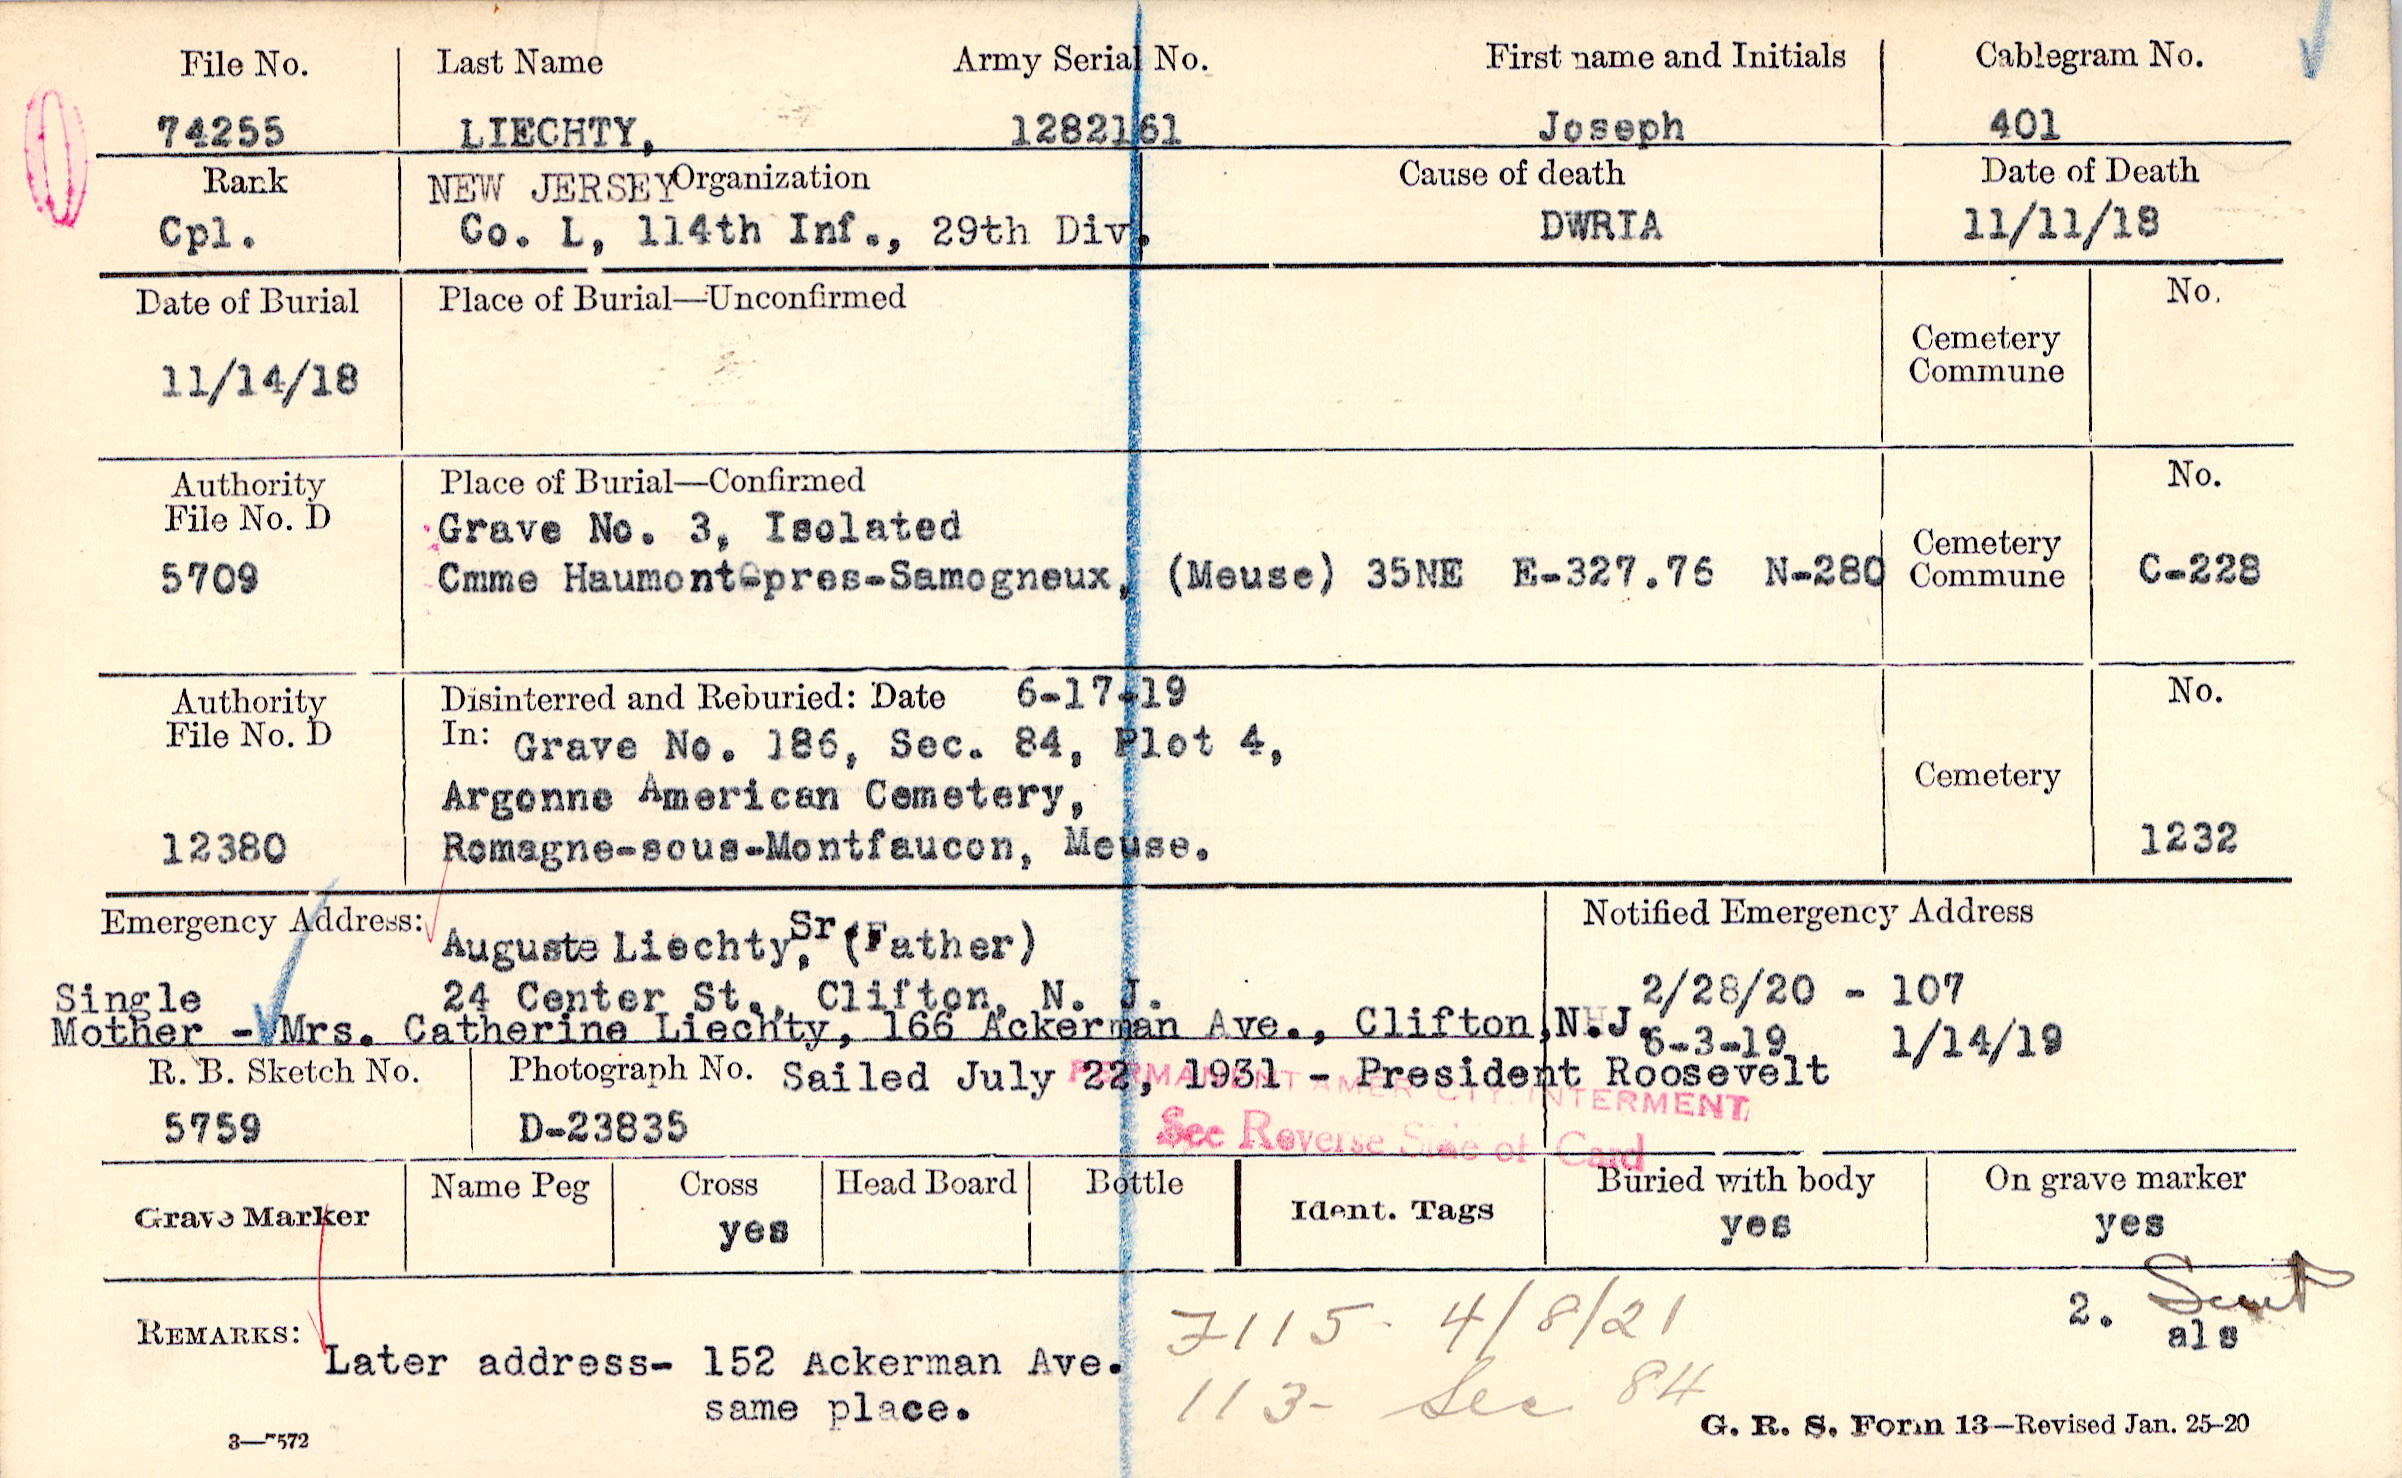 File No. Last Name Army Serial No. First name and Initials Cablegram No.
74255 LIECHTY, 1282161 Joseph 401
Rank NEW JERSEY Organization Cause of death Date of Death
Cpl. Co. L, 114th Inf., 29th Div. DWRIA 11/11/18
Date of Burial Place of Burial—Unconfirmed No.
Cemetery
Commune
11/14/18
Authority Place of Burial—Confirmed No.
File No. D Grave No. 3, Isolated Cemetery
5709 Cmme Haumont-pres-Samogneux, (Meuse) 35NE E-327.76 N-280 Commune C-228
Authority Disinterred and Reburied: Date 6-17-19 No.
File No. D In: Grave No. 186, Sec. 84, Plot 4,
Argonne American Cemetery, Cemetery
12380 Romagne-sous-Montfaucon, Meuse. 1232
Emergency Address: Auguste Liechty, Sr. (Father) Notified Emergency Address
Single 24 Center St., Clifton, N. J. 2/28/20 - 107
Mother - Mrs. Catherine Liechty, 166 Ackerman Ave., Clifton, N.J. 6-3-19 1/14/19
R. B. Sketch No. Photograph No. Sailed July 22, 1931 - President Roosevelt
PERMANENT AMER CTY. INTERMENT
5759 D-23835 See Reverse Side of Card
Grave Marker Name Peg Cross Head Board Bottle Ident. Tags Buried with body On grave marker
yes yes yes
REMARKS: 7115- 4/8/21 2.
als
Later address- 152 Ackerman Ave.
same place. 113- Sec 84
3—7572 G. R. S. Form 13—Revised Jan. 25-20